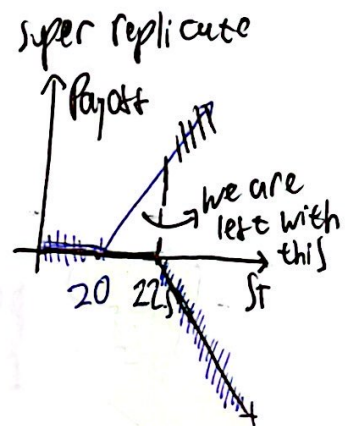 super replicate
Payoff
we are
left with
this
20 22.5 ST